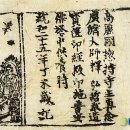 高麗國摠持寺主真念
廣濟大師釋弘哲敬造
寶篋印經板印施普安
佛塔中供養時
統和二十五年丁未歲記